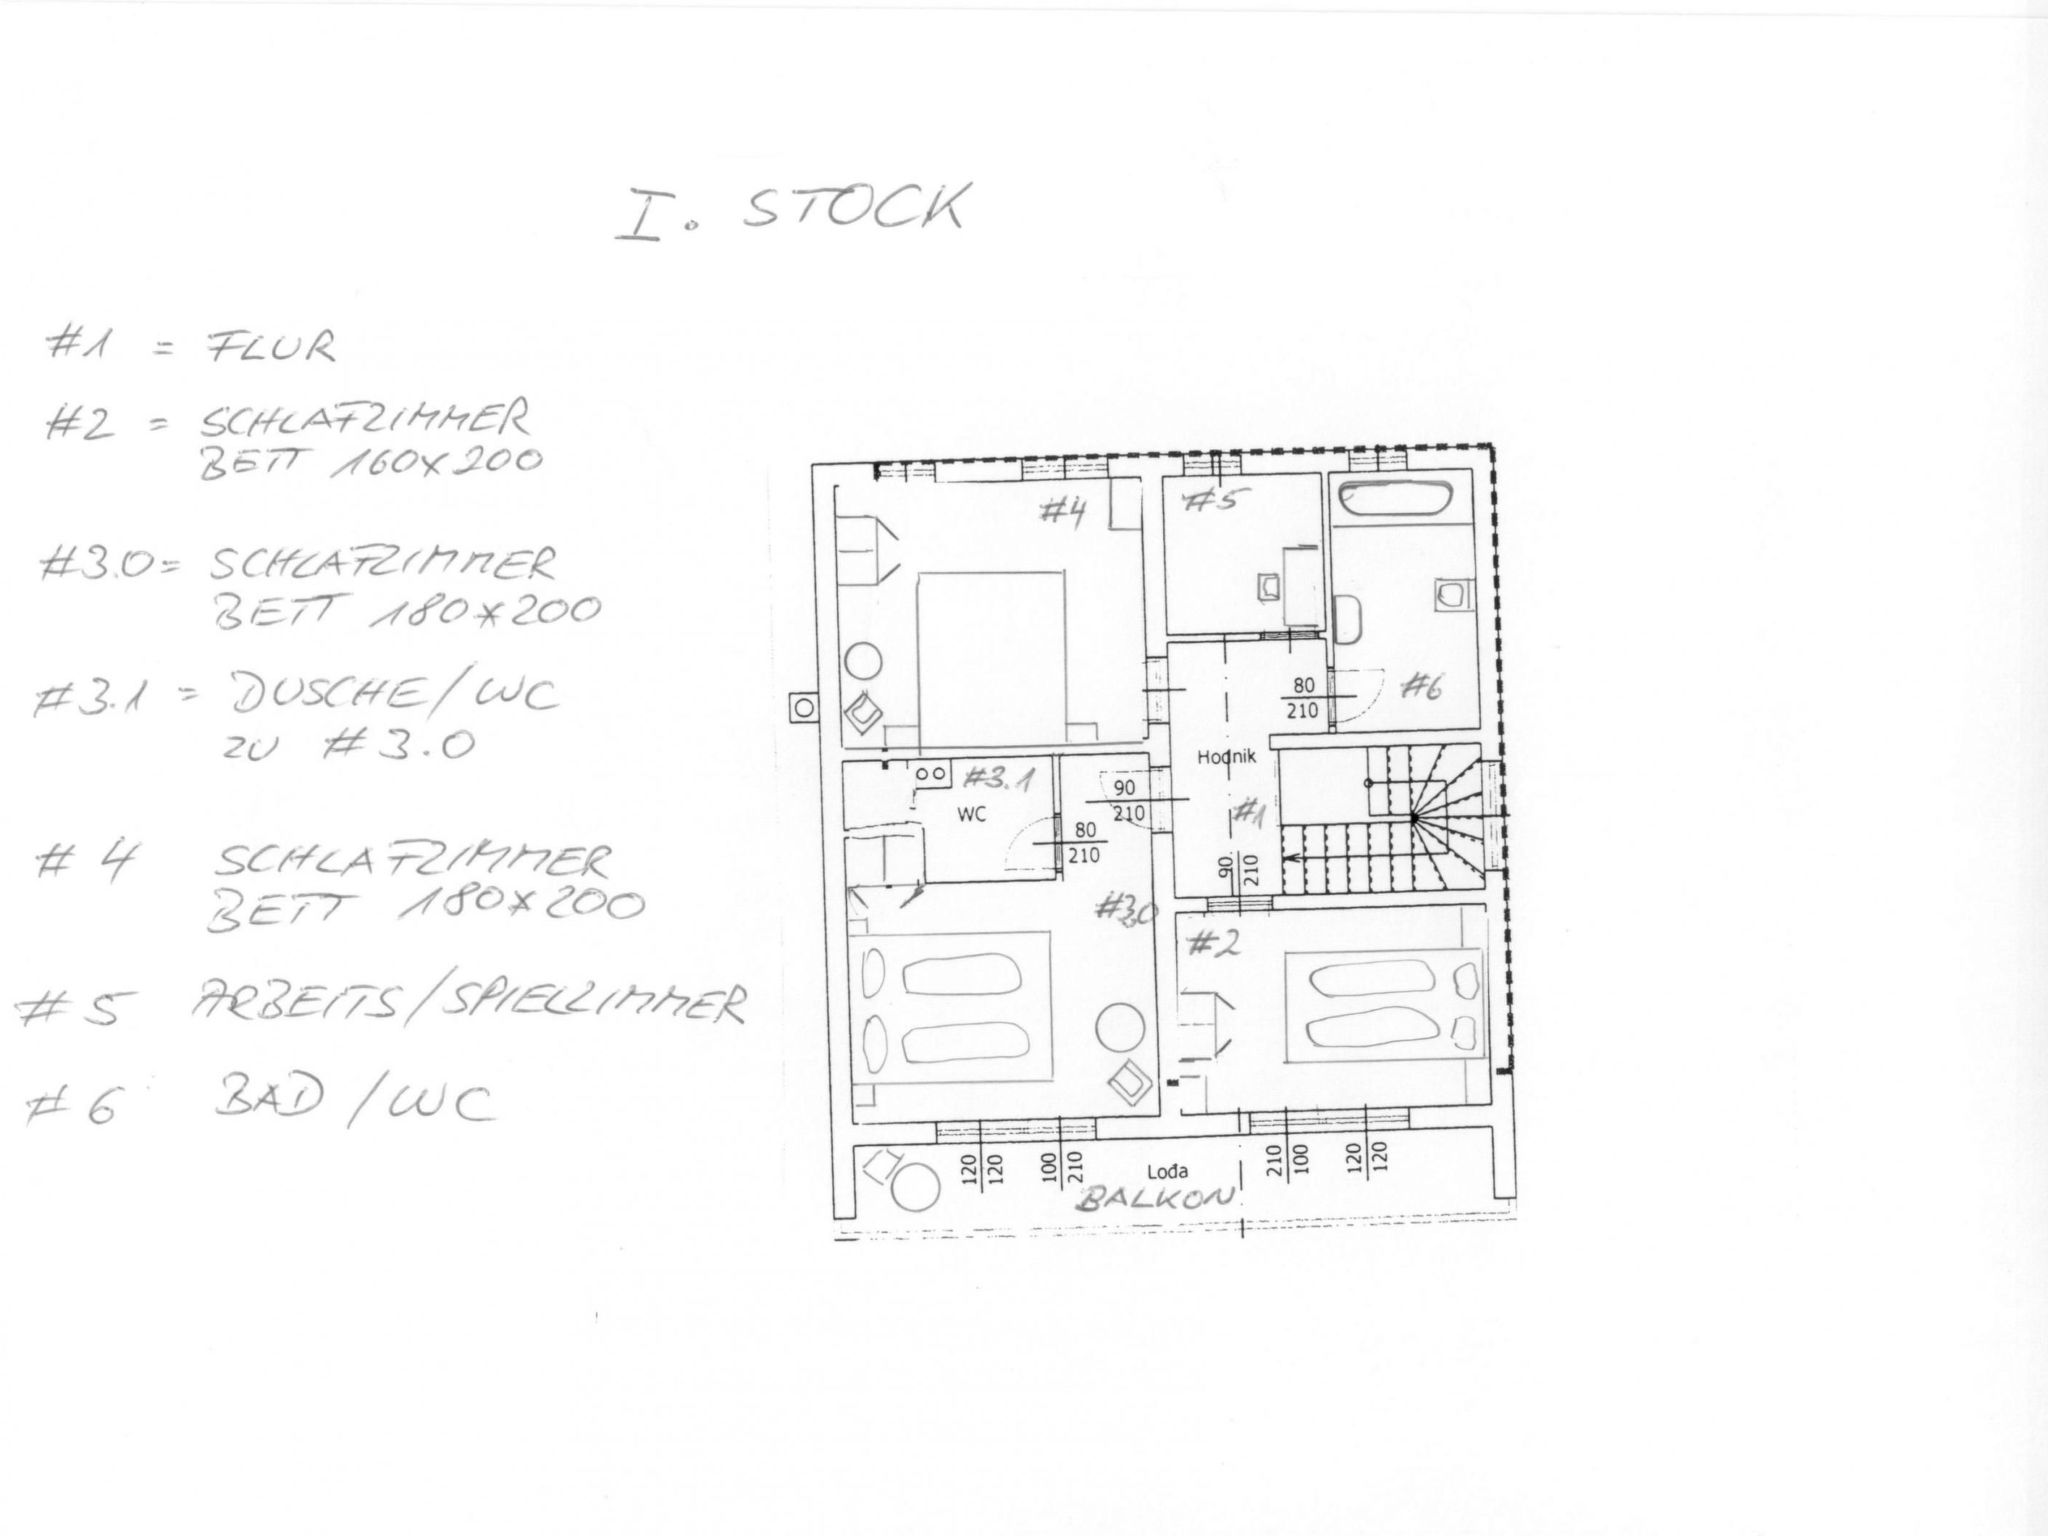 I. STOCK
#1 = FLUR
#2 = SCHLAFZIMMER
BETT 160x200
#3.0= SCHLAFZIMMER
BETT 180x200
#3.1 = DUSCHE/WC
ZU #3.0
#4 SCHLAFZIMMER
BETT 180x200
#5 ARBEITS/SPIELZIMMER
#6 BAD/WC
#4
#5
80
210
#6
Hodnik
#3.1
WC
90
210
80
210
#1
90
210
#3.0
#2
120
120
100
210
210
100
120
120
Lođa
BALKON